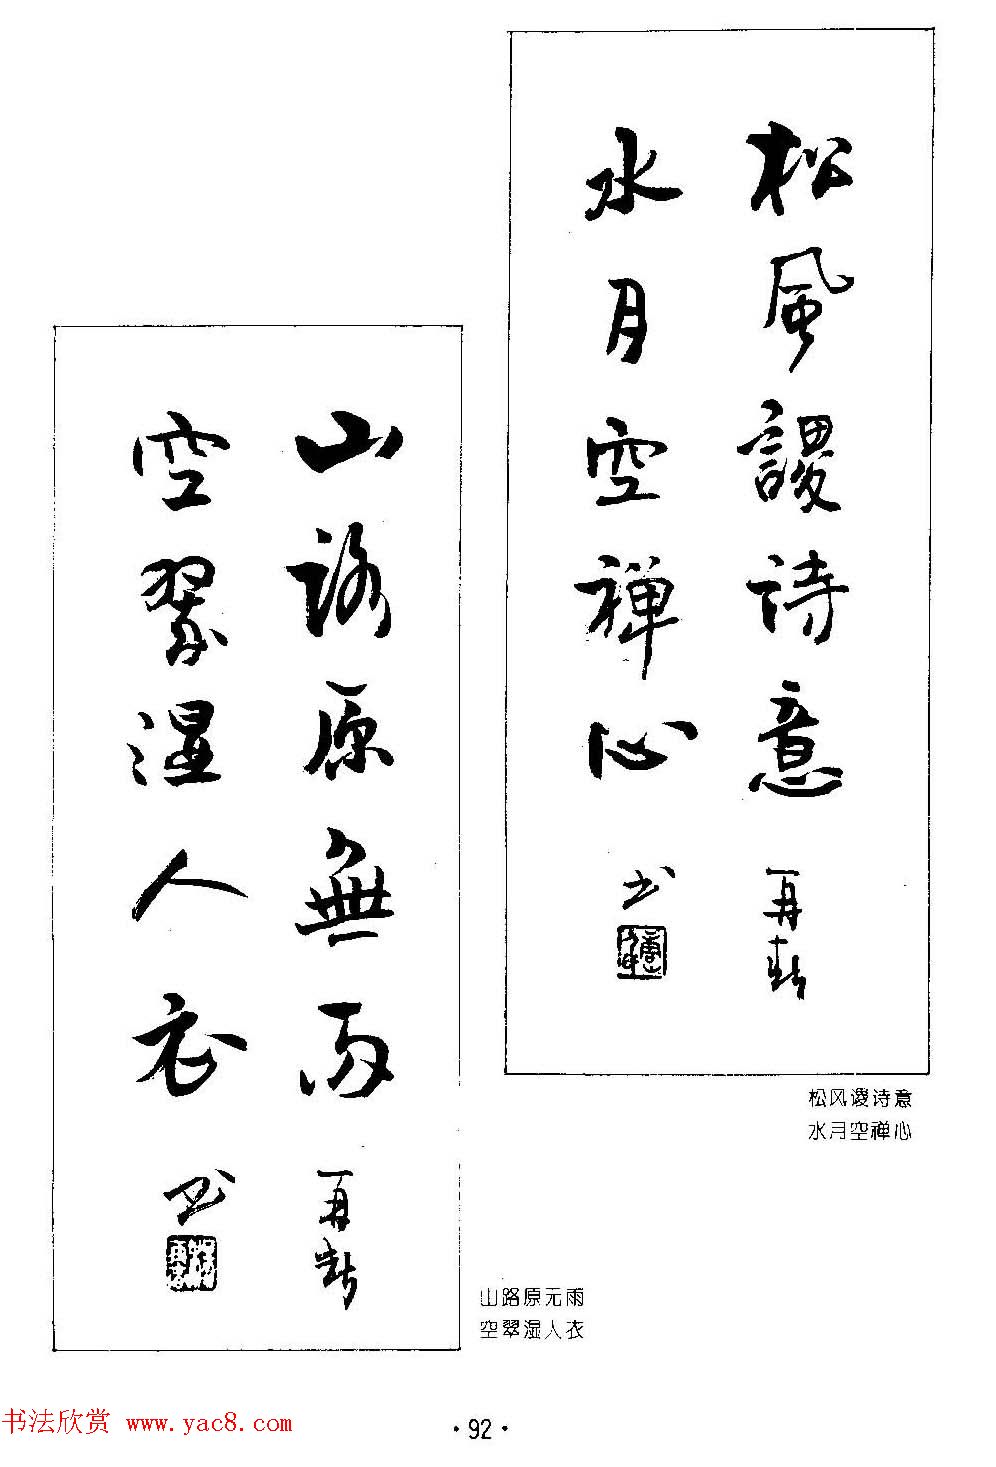 松風謖詩意
再新
水月空禅心
书
松风谡诗意
水月空禅心
山路原無雨
再新
空翠湿人衣
书
山路原无雨
空翠湿人衣
书法欣赏 www.yac8.com
·92·